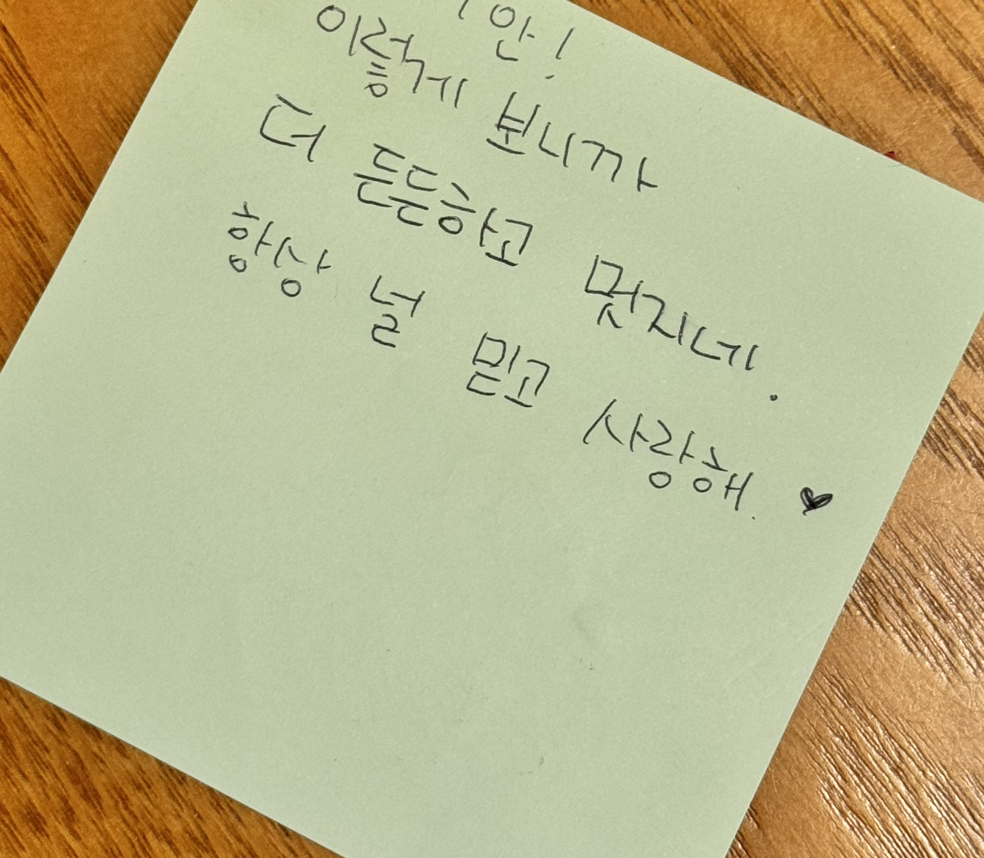 안!
이렇게 보니까
더 든든하고 멋지네.
항상 널 믿고 사랑해. ♥